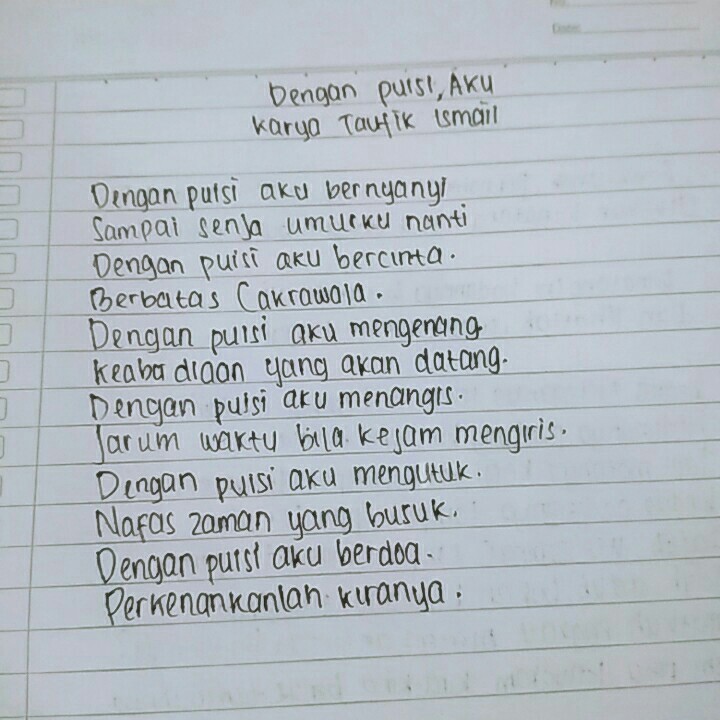 Dengan puisi, Aku
Karya Taufik Ismail
Dengan puisi aku bernyanyi
Sampai senja umurku nanti
Dengan puisi aku bercinta.
Berbatas Cakrawala.
Dengan puisi aku mengenang
keabadiaan yang akan datang.
Dengan puisi aku menangis.
Jarum waktu bila kejam mengiris.
Dengan puisi aku mengutuk.
Nafas zaman yang busuk.
Dengan puisi aku berdoa.
Perkenankanlah kiranya.